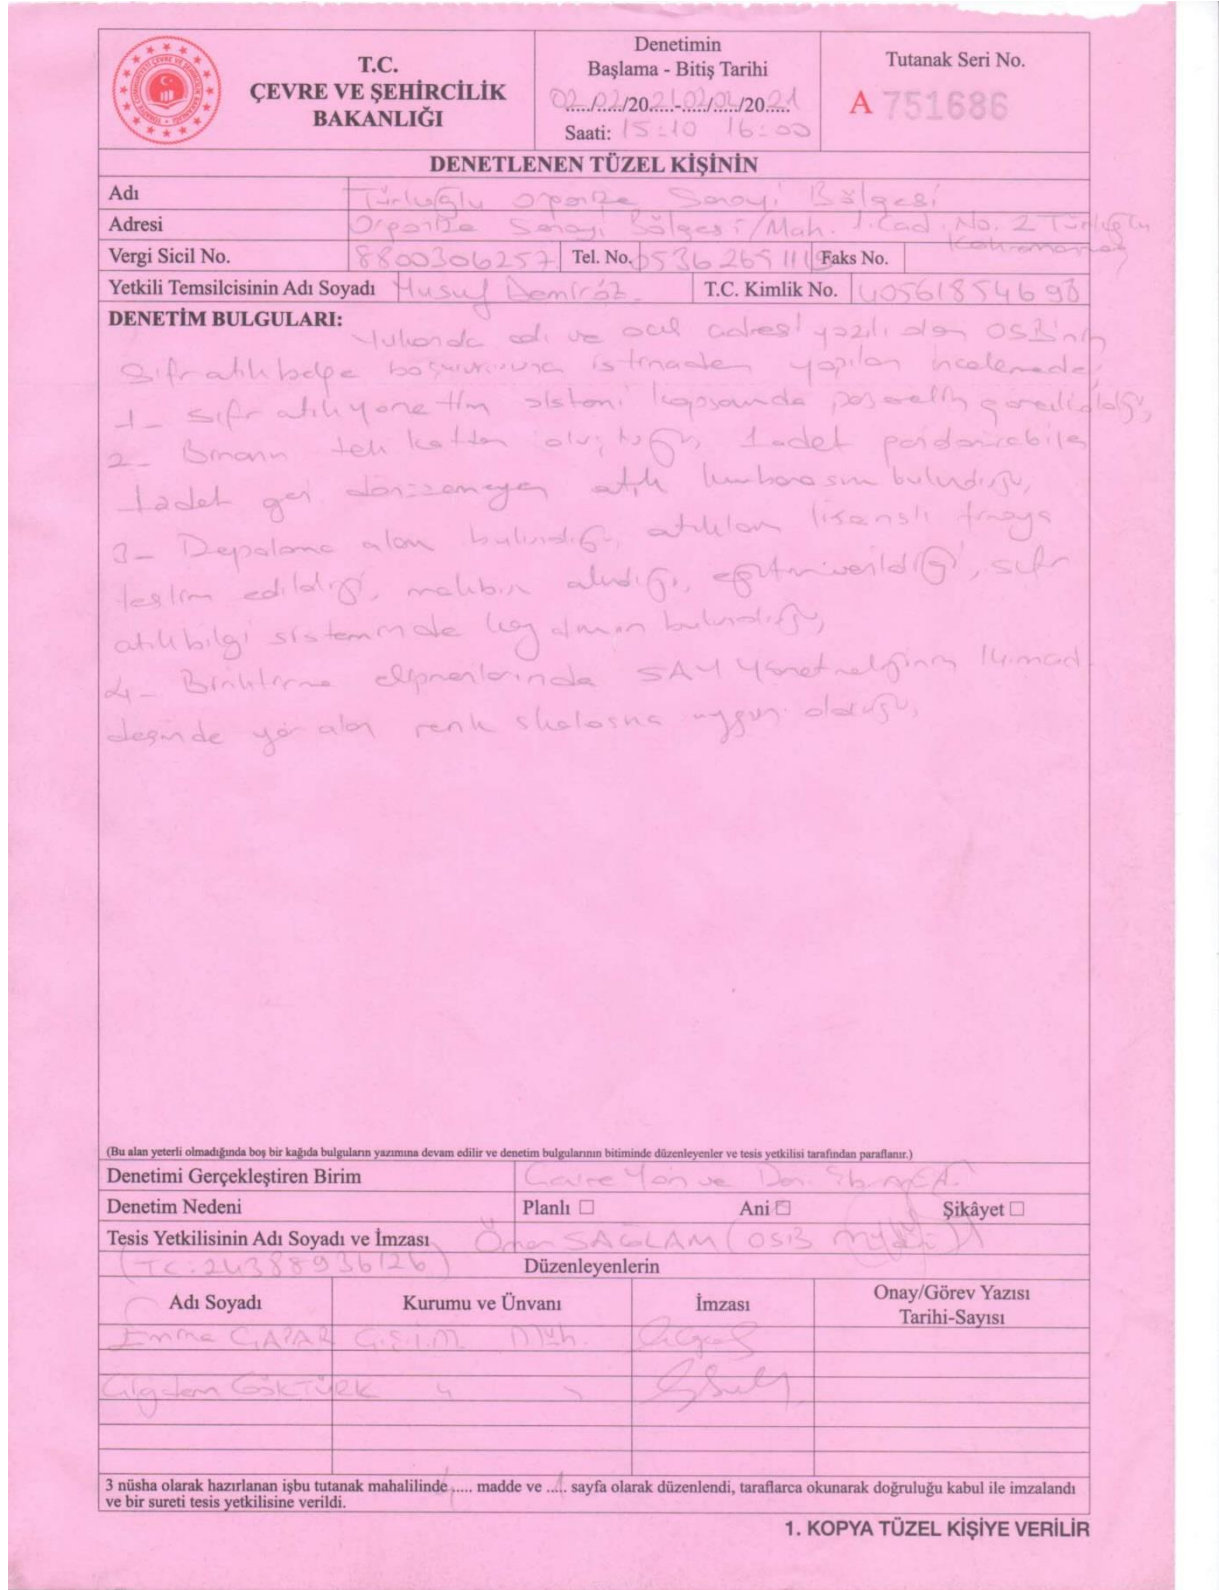 T.C.
ÇEVRE VE ŞEHİRCİLİK
BAKANLIĞI
Denetimin
Başlama - Bitiş Tarihi
02/02/2021-02/02/2021
Saati: 15:10 16:00
Tutanak Seri No.
A 751686
DENETLENEN TÜZEL KİŞİNİN
Adı Türkoğlu Organize Sanayi Bölgesi
Adresi Organize Sanayi Bölgesi/Mah. 1.Cad. No. 2 Türkoğlu
Kahramanmaraş
Vergi Sicil No. 8800306257 Tel. No. 0536 265 111 Faks No.
Yetkili Temsilcisinin Adı Soyadı Yusuf Demiröz. T.C. Kimlik No. 40561854698
DENETİM BULGULARI:
Yukarıda adı ve açık adresi yazılı olan OSB'nin
Sıfır atık belge başvurusuna istinaden yapılan incelemede;
1- Sıfır atık yönetim sistemi kapsamında personelin görevlendirildiği,
2- Binanın tek kattan oluştuğu, 1 adet
1 adet geri dönüşemeyen atık kumbarasın bulunduğu,
3- Depolama alanı bulunduğu, atıkların lisanslı firmaya
teslim edildiği, makbuz alındığı, eğitim verildiği, sıfır
atık bilgi sisteminde kaydının bulunduğu,
4- Biriktirme ekipmanlarında SAY Yönetmeliğinin 14.mad
desinde yer alan renk skalasına uygun olduğu,
(Bu alan yeterli olmadığında boş bir kağıda bulguların yazımına devam edilir ve denetim bulgularının bitiminde düzenleyenler ve tesis yetkilisi tarafından paraflanır.)
Denetimi Gerçekleştiren Birim Çevre Yön ve Den.
Denetim Nedeni Planlı Ani Şikâyet
Tesis Yetkilisinin Adı Soyadı ve İmzası Ömer SAĞLAM (OSB Müdürü)
(TC: 24388936126) Düzenleyenlerin
Adı Soyadı Kurumu ve Ünvanı İmzası Onay/Görev Yazısı
Tarihi-Sayısı
Emine Ç.Ş.İ.M Müh.
Çiğdem GÖKTÜRK " "
3 nüsha olarak hazırlanan işbu tutanak mahalilinde ..... madde ve ..1.. sayfa olarak düzenlendi, taraflarca okunarak doğruluğu kabul ile imzalandı
ve bir sureti tesis yetkilisine verildi.
1. KOPYA TÜZEL KİŞİYE VERİLİR